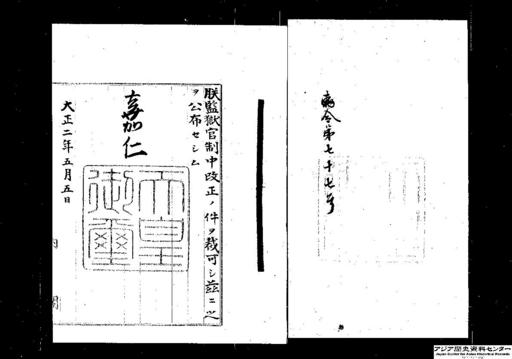 勅令第七十七号
朕監獄官制中改正ノ件ヲ裁可シ茲ニ之
ヲ公布セシム
嘉仁
天皇御璽
大正二年五月五日
内閣
アジア歴史資料センター
Japan Center for Asian Historical Records